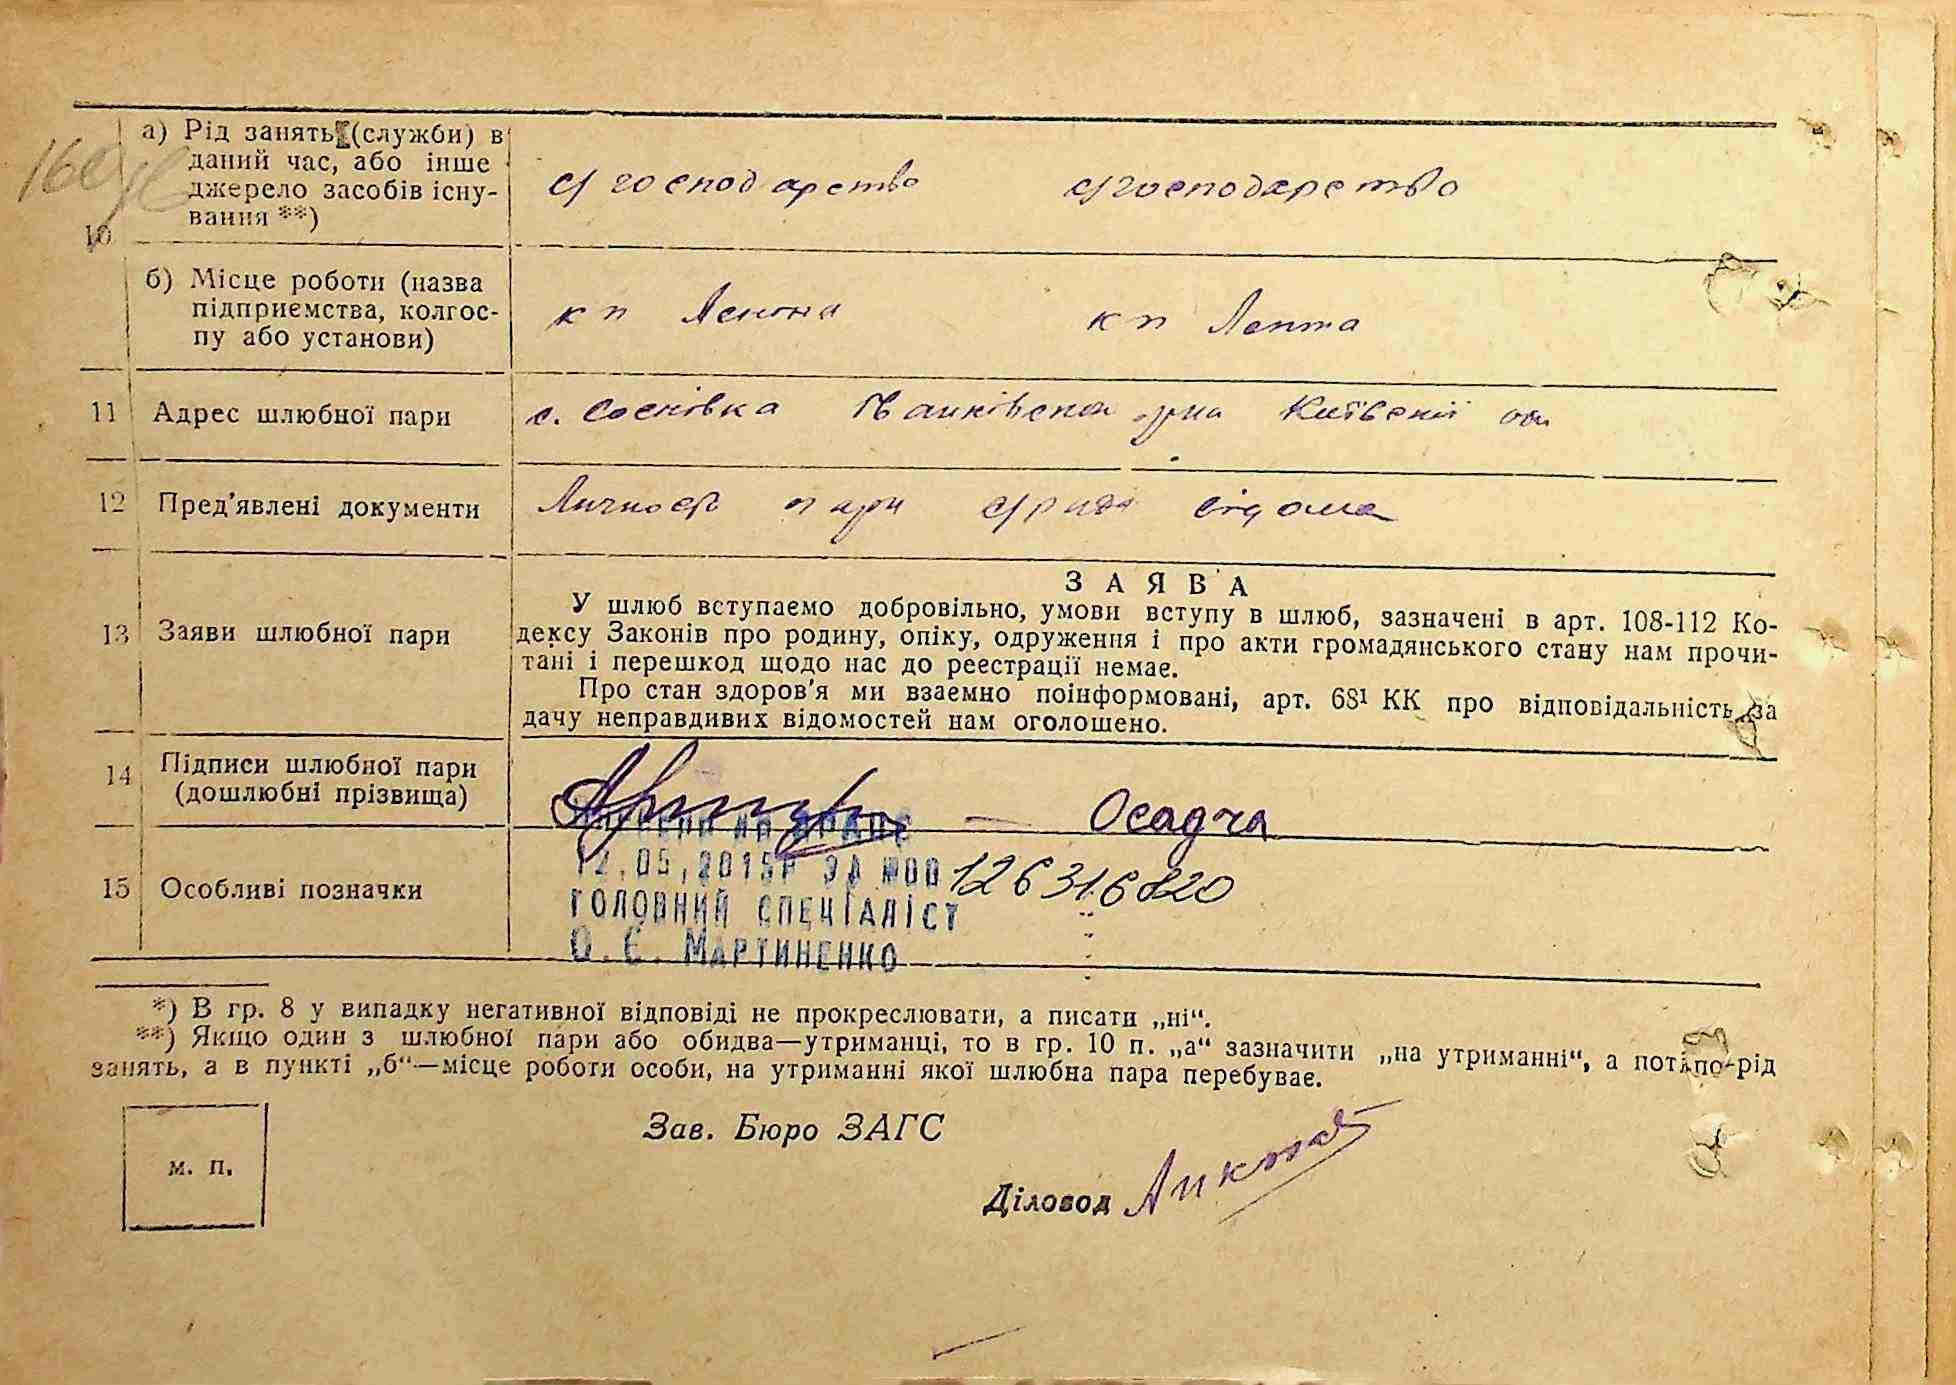 а) Рід занять (служби) в
даний час, або інше
джерело засобів існу-
вання **)
с/господарство с/господарство
10
б) Місце роботи (назва
підприємства, колгос-
пу або установи)
кп Леніна кп
11 Адрес шлюбної пари
с. Соснівка Київської обл
12 Пред'явлені документи
Личность пари с/раді відома
13 Заяви шлюбної пари
ЗАЯВА
У шлюб вступаємо добровільно, умови вступу в шлюб, зазначені в арт. 108-112 Ко-
дексу Законів про родину, опіку, одруження і про акти громадянського стану нам прочи-
тані і перешкод щодо нас до реєстрації немає.
Про стан здоров'я ми взаємно поінформовані, арт. 68¹ КК про відповідальність за
дачу неправдивих відомостей нам оголошено.
14 Підписи шлюбної пари
(дошлюбні прізвища)
— Осадча
15 Особливі позначки
12.05.2015Р ЗА №00126316820
ГОЛОВНИЙ СПЕЦІАЛІСТ
О. Є. МАРТИНЕНКО
*) В гр. 8 у випадку негативної відповіді не прокреслювати, а писати „ні“.
**) Якщо один з шлюбної пари або обидва—утриманці, то в гр. 10 п. „а“ зазначити „на утриманні“, а потім по-рід
занять, а в пункті „б“—місце роботи особи, на утриманні якої шлюбна пара перебуває.
м. п.
Зав. Бюро ЗАГС
Діловод